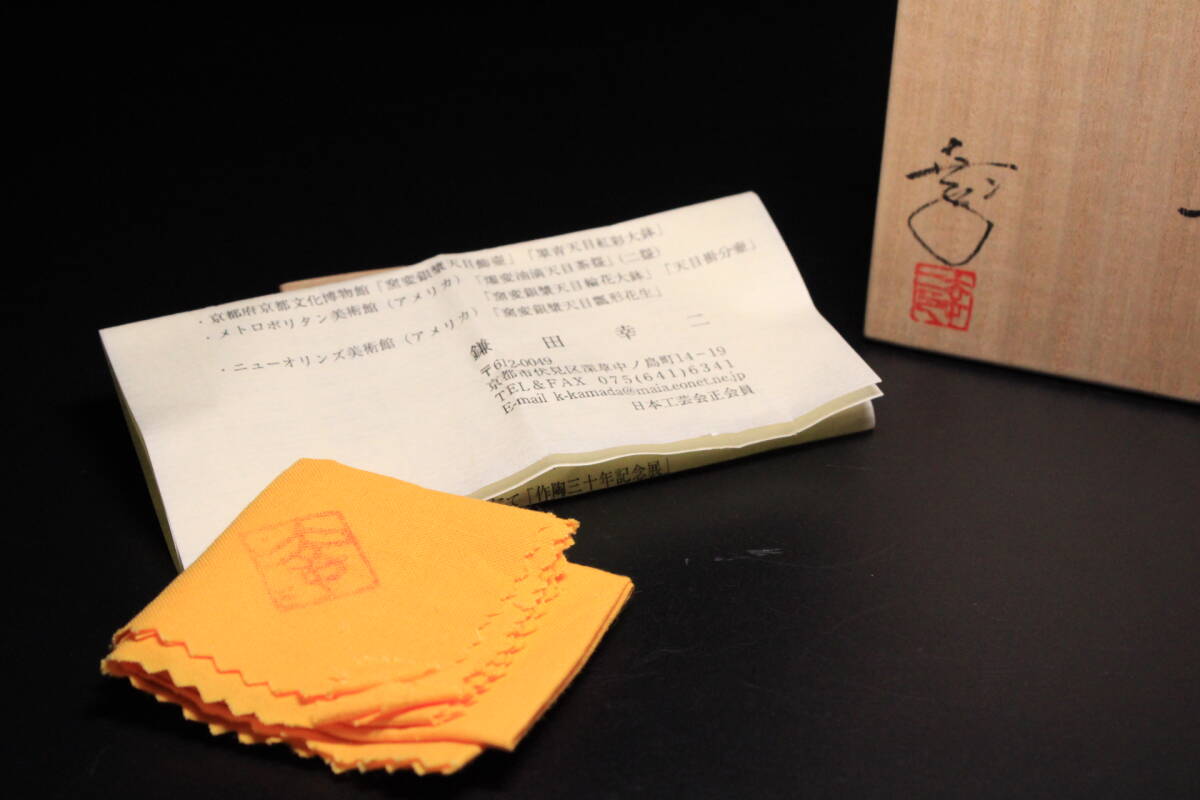 ・京都府京都文化博物館「窯変銀彅天目飾壷」「翠青天目虹彩大鉢」
・メトロポリタン美術館（アメリカ）「燿変油滴天目茶盌」（二盌）
「窯変銀彅天目輪花大鉢」「天目掛分壷」
・ニューオリンズ美術館（アメリカ）「窯変銀彅天目瓢形花生」
鎌田幸二
〒612-0049
京都市伏見区深草中ノ島町14−19
TEL&FAX 075(641)6341
E-mail k-kamada@maia.eonet.ne.jp
日本工芸会正会員
て「作陶三十年記念展」
幸